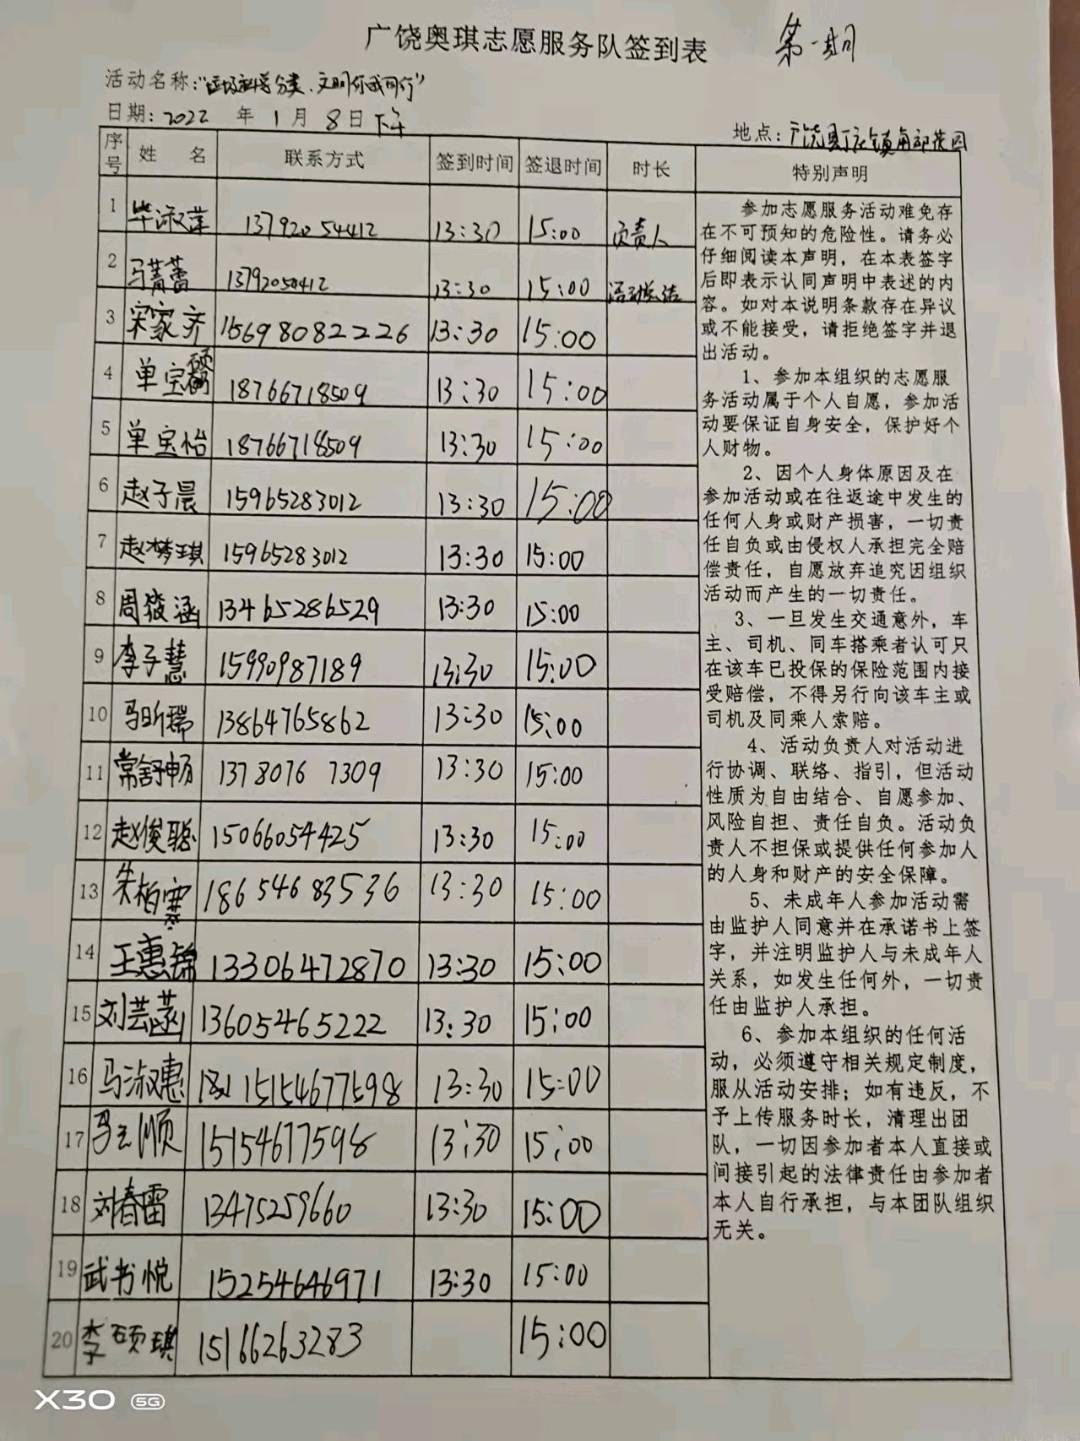 广饶奥琪志愿服务队签到表 第一期
活动名称:“垃圾科学分类、文明你我同行”
日期: 2022 年 1 月 8 日 下午
地点: 广饶县
序号 姓 名 联系方式 签到时间 签退时间 时长 特别声明
1 毕淑萍 13792054412 13:30 15:00 负责人
2 马菁蕾 13792050412 13:30 15:00
3 宋家齐 15698082226 13:30 15:00
4 单宝硕 18766718509 13:30 15:00
5 单宝怡 18766718509 13:30 15:00
6 赵子晨 15965283012 13:30 15:00
7 赵梦琪 15965283012 13:30 15:00
8 周筱涵 13465286529 13:30 15:00
9 李子慧 15990987189 13:30 15:00
10 马昕瑞 13864765862 13:30 15:00
11 常舒畅 1378076 7309 13:30 15:00
12 赵俊聪 15066054425 13:30 15:00
13 朱柏骞 18654683536 13:30 15:00
14 王惠锦 13306472870 13:30 15:00
15 刘芸菡 13605465222 13:30 15:00
16 马淑惠 15154677598 13:30 15:00
17 马玉顺 15154677598 13:30 15:00
18 刘春雷 13475259660 13:30 15:00
19 武书悦 15254646971 13:30 15:00
20 李硕琪 15166263283 15:00
参加志愿服务活动难免存
在不可预知的危险性。请务必
仔细阅读本声明，在本表签字
后即表示认同声明中表述的内
容。如对本说明条款存在异议
或不能接受，请拒绝签字并退
出活动。
1、参加本组织的志愿服
务活动属于个人自愿，参加活
动要保证自身安全，保护好个
人财物。
2、因个人身体原因及在
参加活动或在往返途中发生的
任何人身或财产损害，一切责
任自负或由侵权人承担完全赔
偿责任，自愿放弃追究因组织
活动而产生的一切责任。
3、一旦发生交通意外，车
主、司机、同车搭乘者认可只
在该车已投保的保险范围内接
受赔偿，不得另行向该车主或
司机及同乘人索赔。
4、活动负责人对活动进
行协调、联络、指引，但活动
性质为自由结合、自愿参加、
风险自担、责任自负。活动负
责人不担保或提供任何参加人
的人身和财产的安全保障。
5、未成年人参加活动需
由监护人同意并在承诺书上签
字，并注明监护人与未成年人
关系，如发生任何外，一切责
任由监护人承担。
6、参加本组织的任何活
动，必须遵守相关规定制度，
服从活动安排；如有违反，不
予上传服务时长，清理出团
队，一切因参加者本人直接或
间接引起的法律责任由参加者
本人自行承担，与本团队组织
无关。
X30 5G